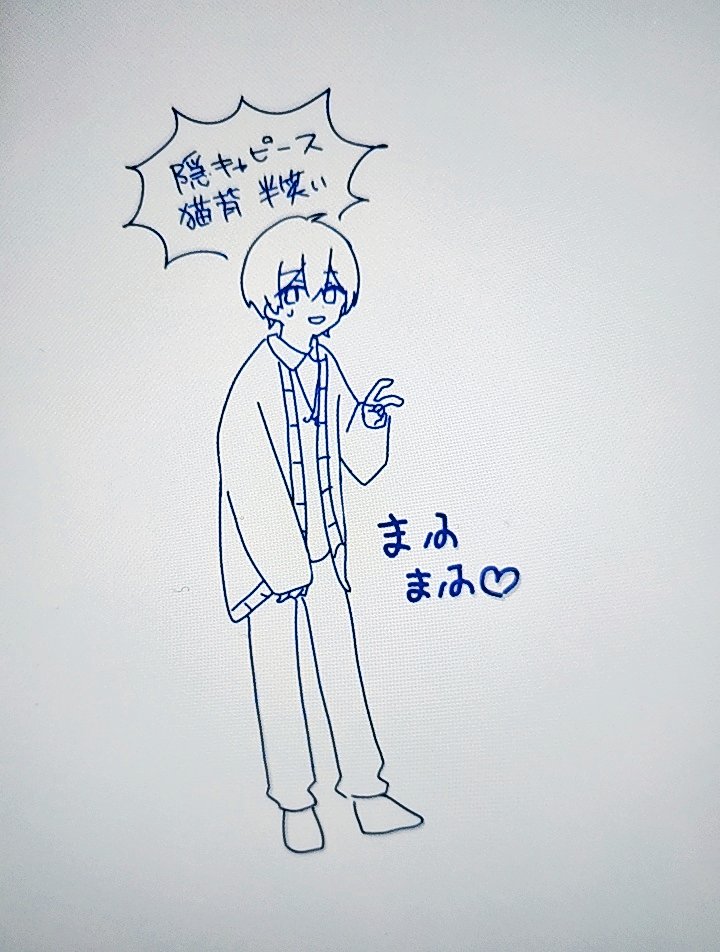 隠キャピース
猫背 半笑い
まふ
まふ♡